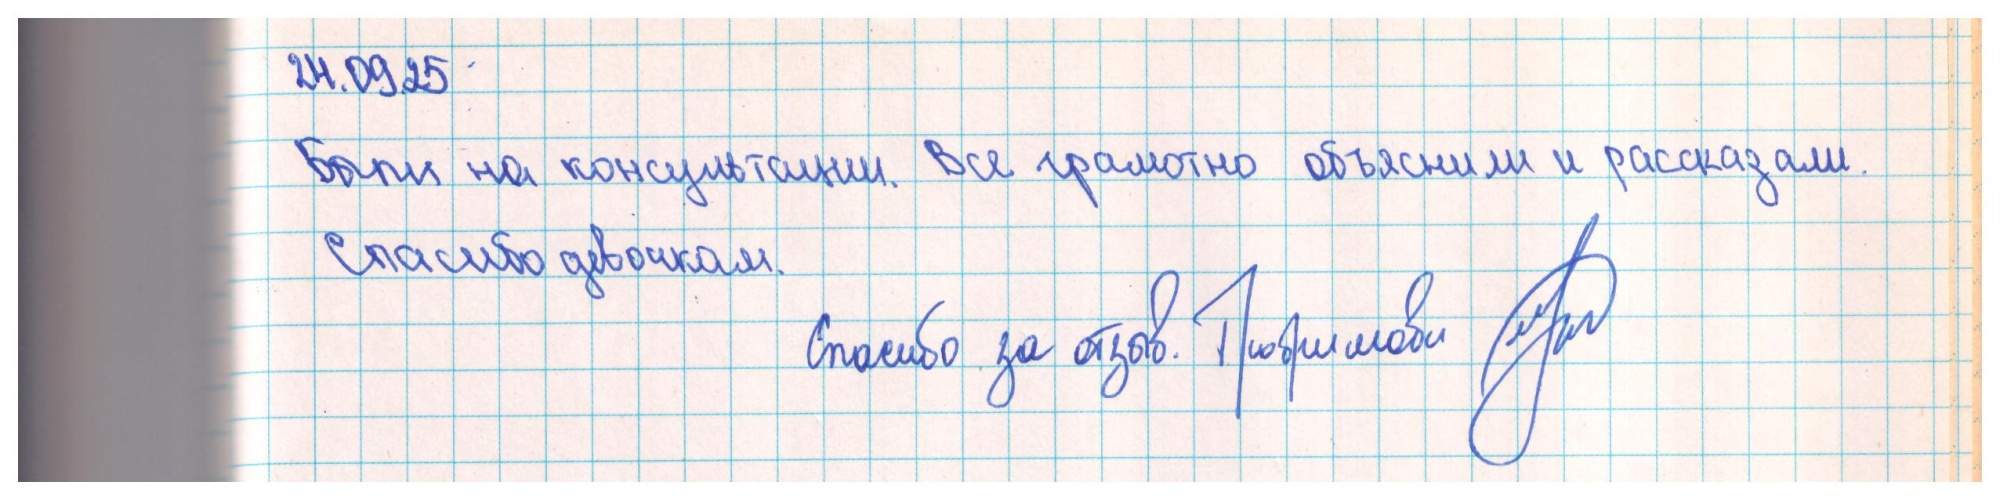 24.09.25
Были на консультации. Все грамотно объяснили и рассказали.
Спасибо девочкам.
Спасибо за отзыв.